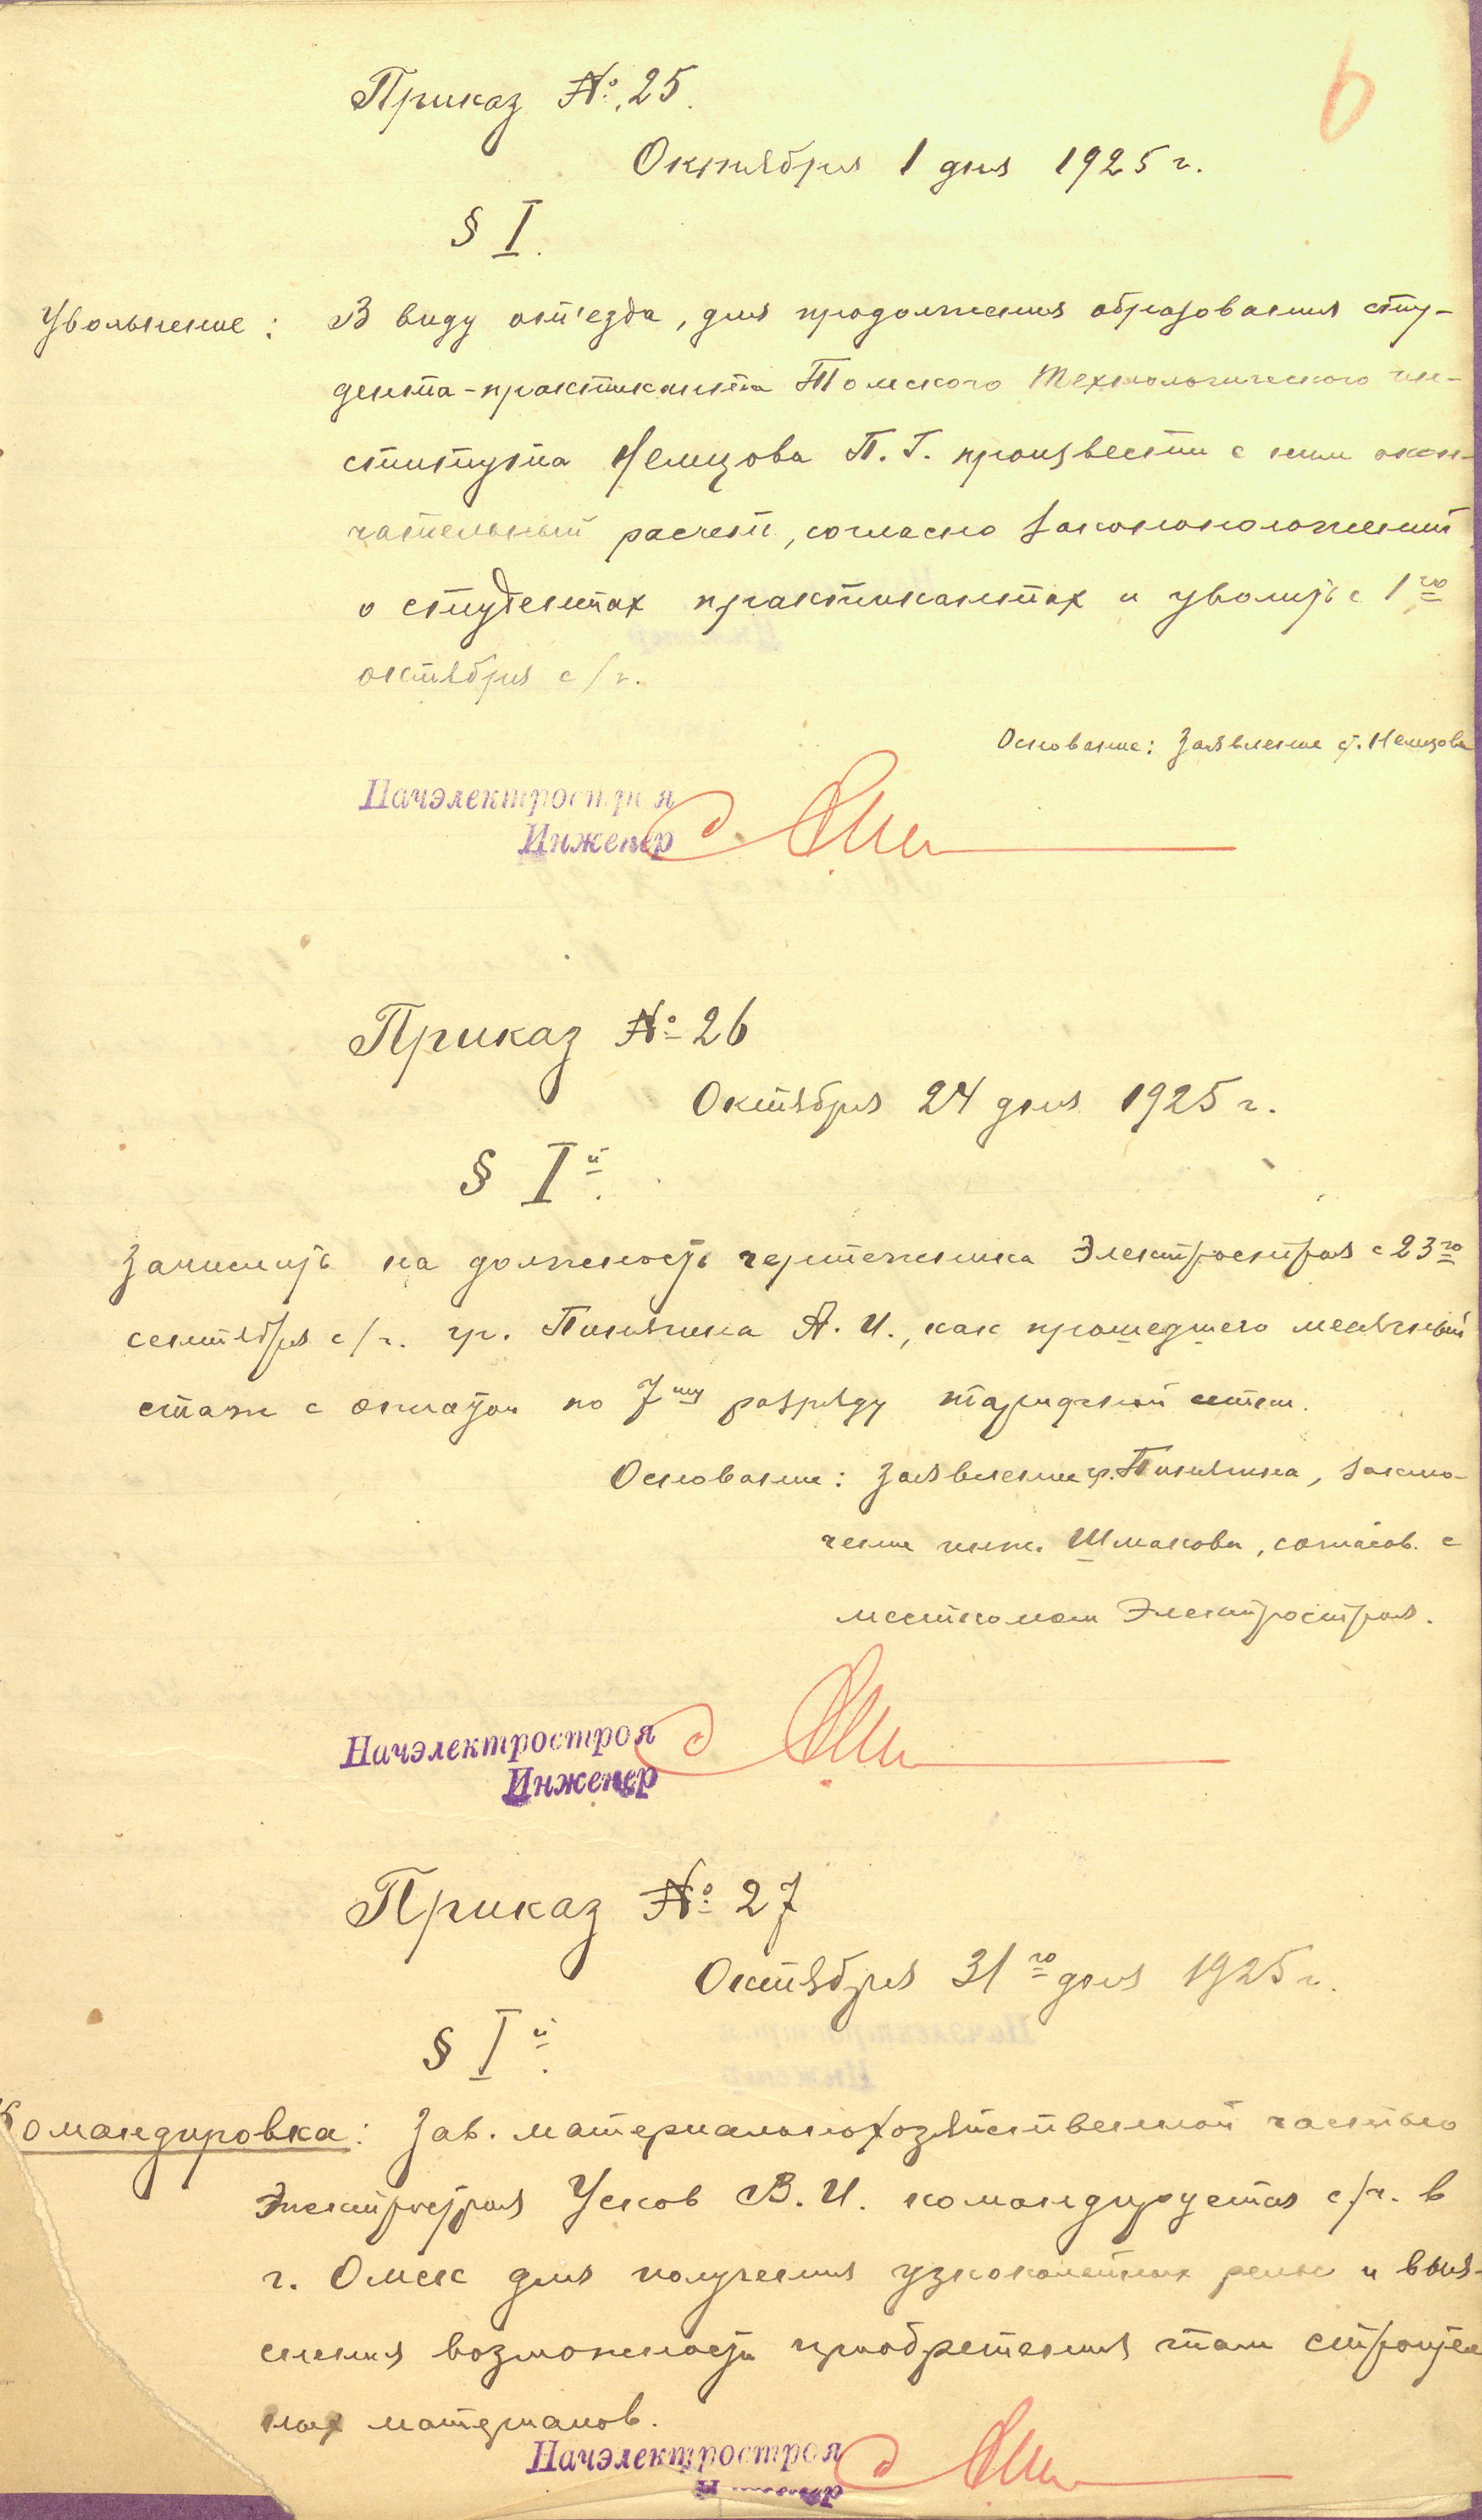 6
Приказ №25.
Октября 1 дня 1925 г.
§ I.
Увольнение: В виду от'езда, для продолжения образования сту-
дента-практиканта Томского Технологического ин-
ститута Немцова П.Г. произвести с ним окон-
чательный расчет, согласно законоположений
о студентах практикантах и уволить с 1го
октября с/г.
Основание: Заявление ст. Немцова
Начэлектростроя
Инженер
Приказ № 26
Октября 24 дня 1925 г.
§ Iй.
Зачислить на должность чертежника Электростроя с 23го
сентября с/г. гр. Пинягина А.И., как прошедшего месячный
стаж с оплатой по 7му разряду тарифной сетки.
Основание: Заявление гр. Пинягина, заклю-
чение инж. Шмакова, согласов. с
месткомом Электростроя.
Начэлектростроя
Инженер
Приказ № 27
Октября 31го дня 1925 г.
§ Iй.
Командировка: Зав. материальнохозяйственной частью
Электростроя Усков В.И. командируется с/ч. в
г. Омск для получения узкоколейных рельс и выя-
снения возможности приобретения там строител
ных материалов.
Начэлектростроя
Инженер